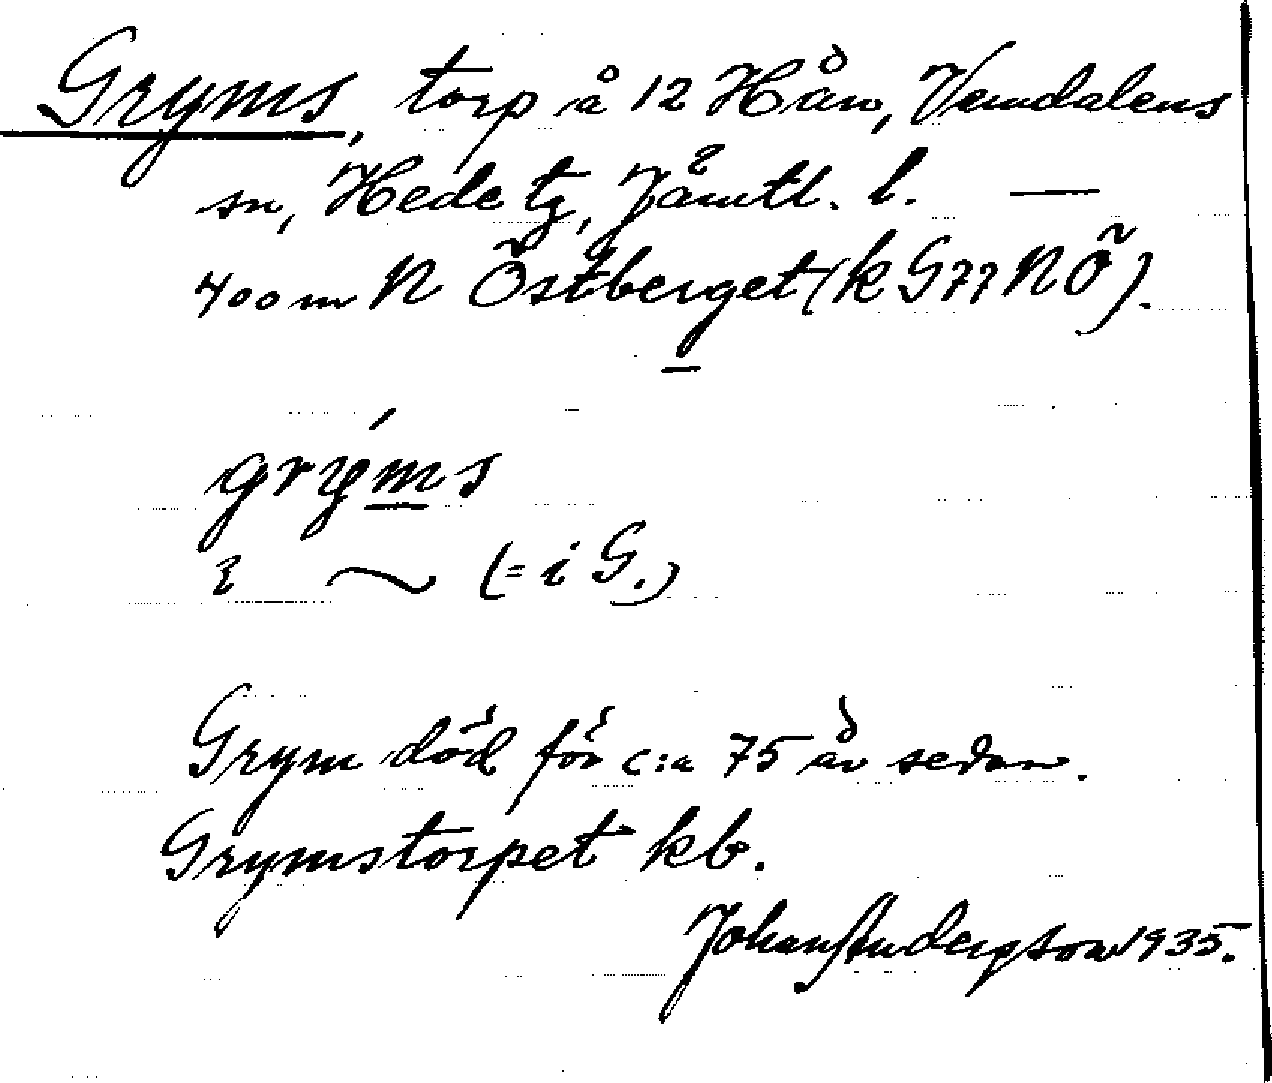 Gryms, torp å 12 Hån, Vemdalens
sn, Hede tg, Jämtl. l. —
400 m N Östberget (k G77 NÖ).
grym̲s
i ~ (= i G.)
Grym död för c:a 75 år sedan.
Grymstorpet kb.
Johan Anderson 1935.